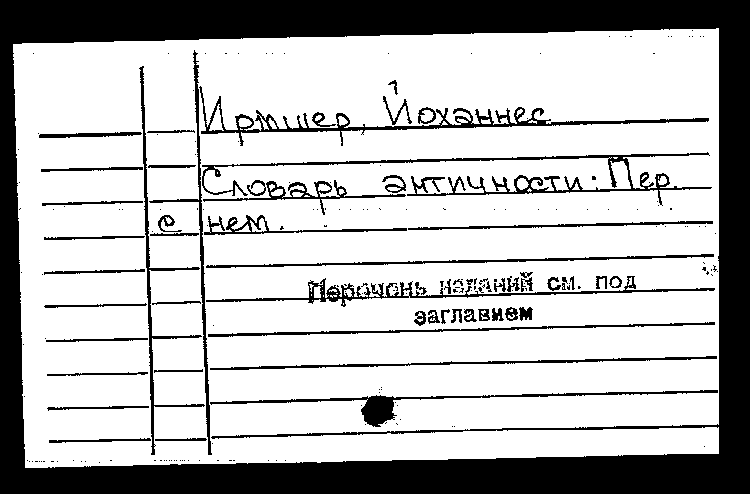 Ирмшер, Йоханнес
Словарь античности: Пер.
с нем.
Перечень изданий см. под
заглавием